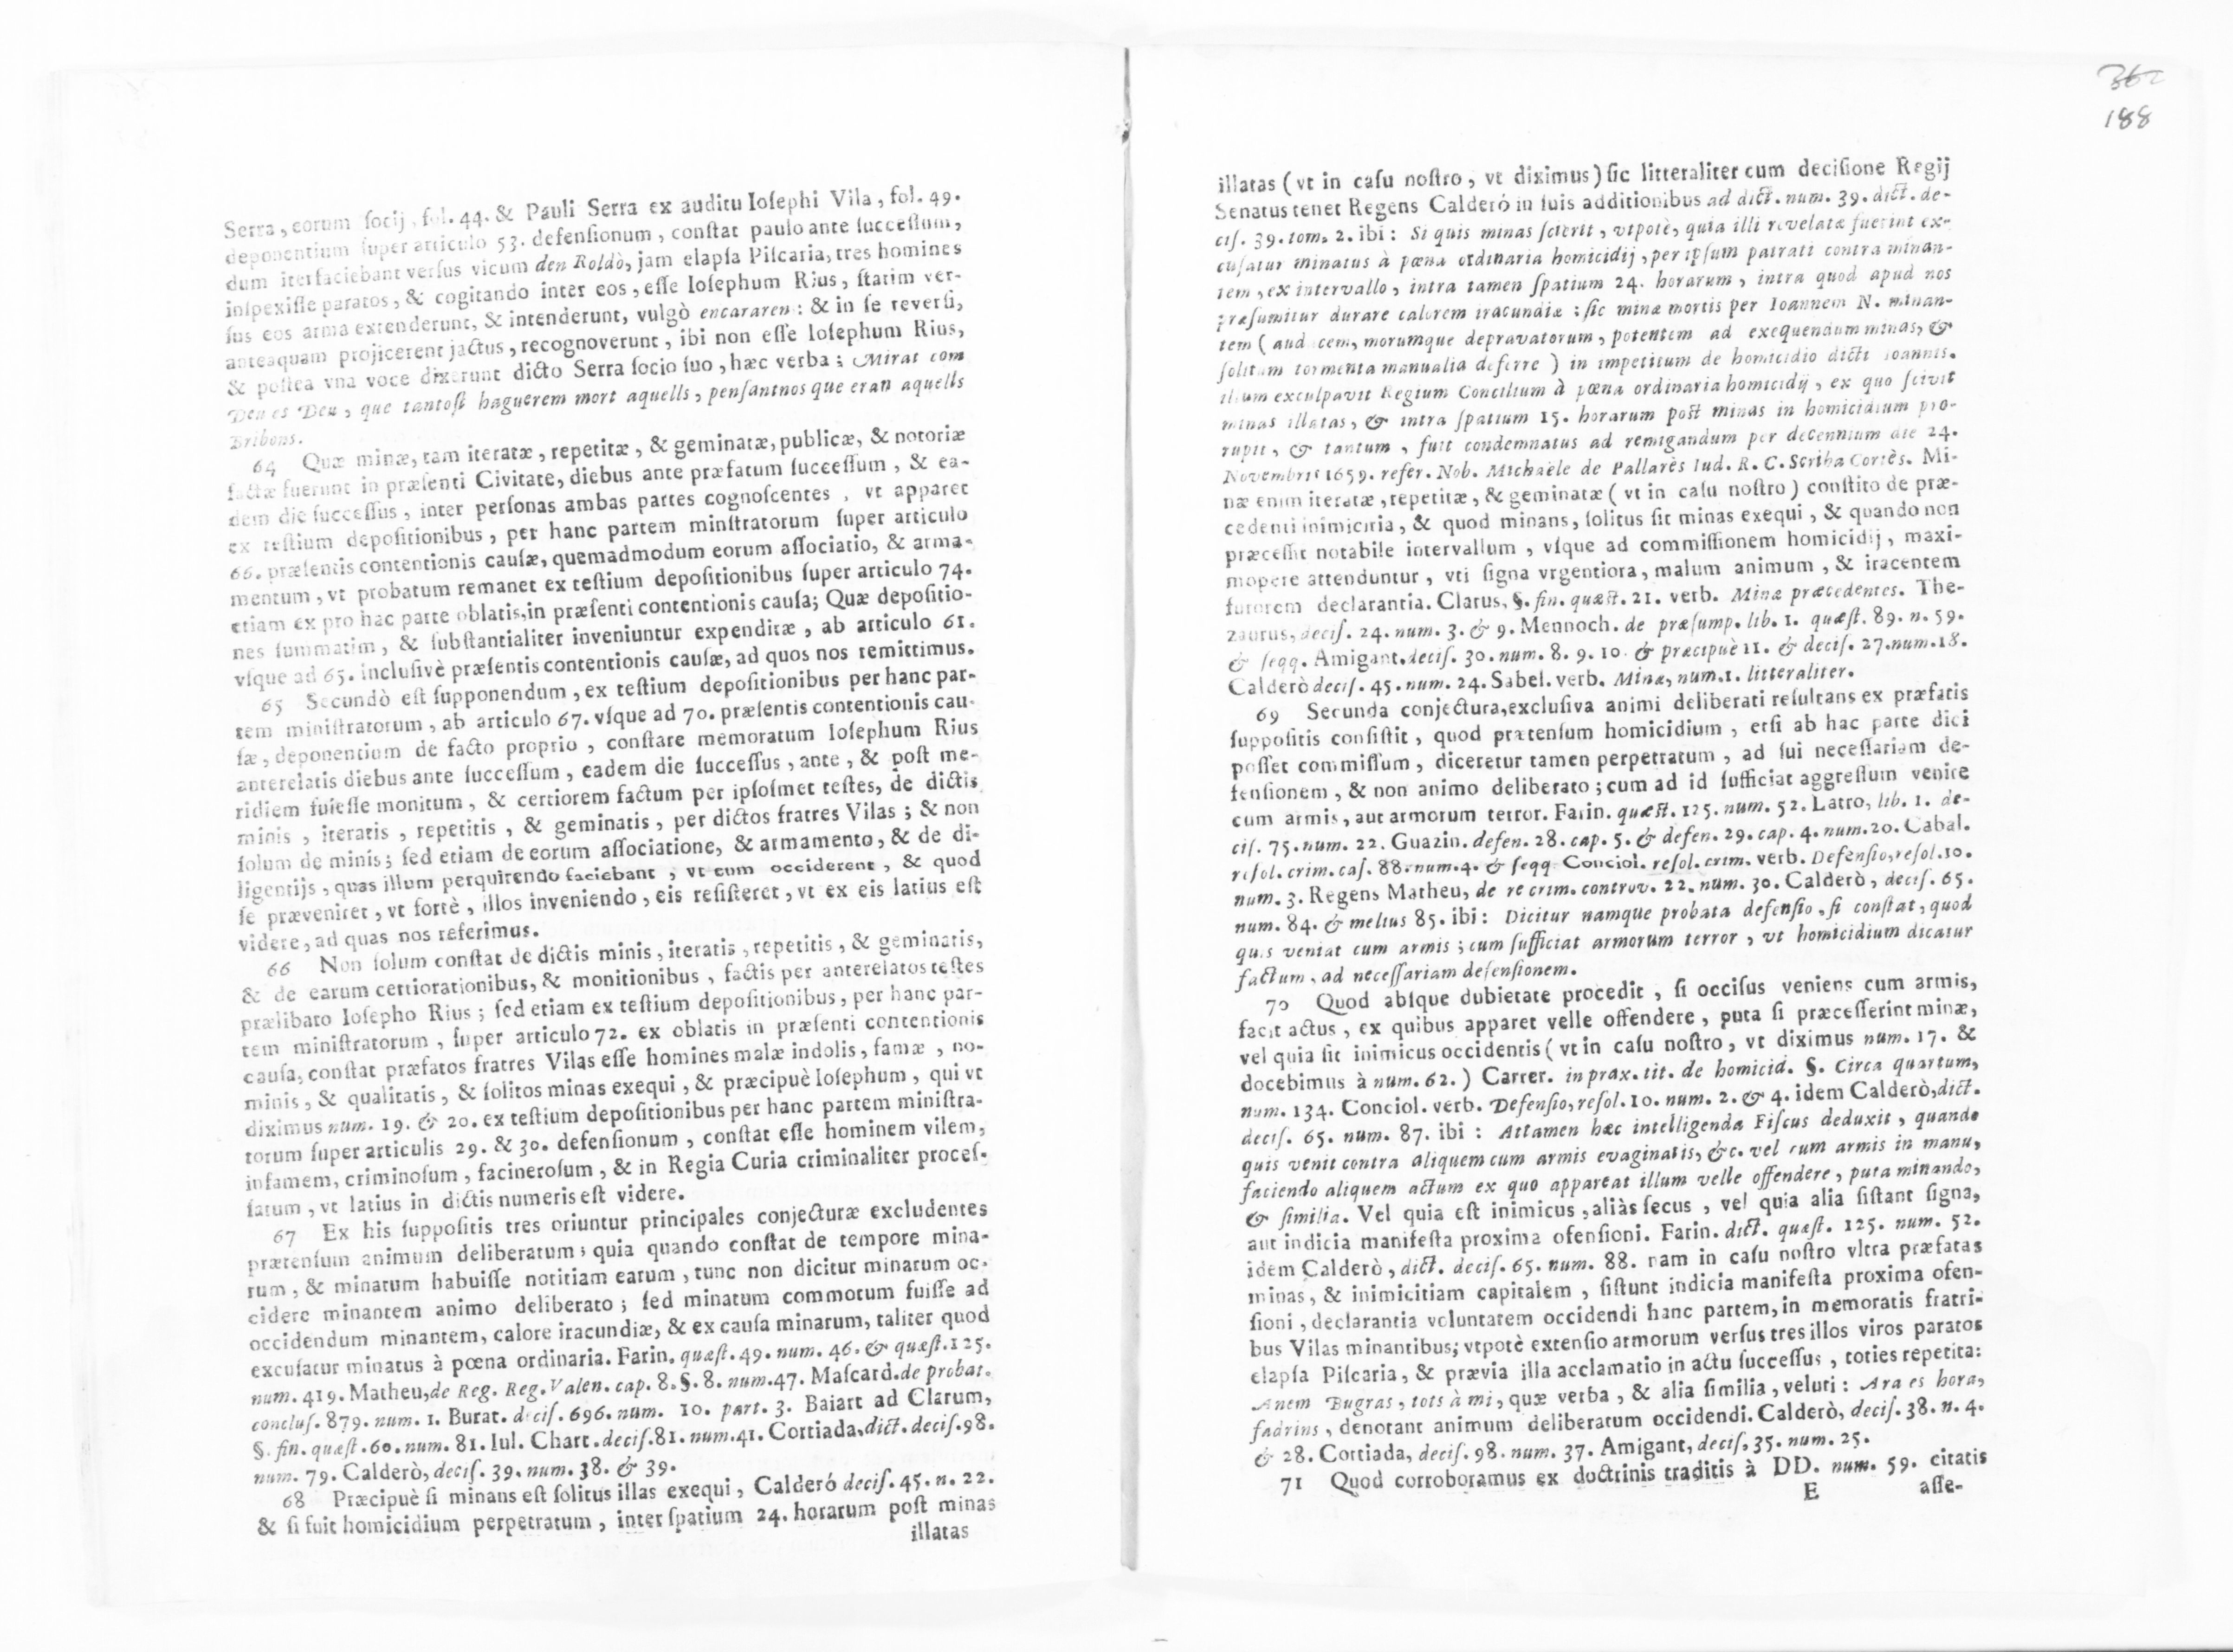 Serra, eorum ſocij, fol. 44. & Pauli Serra ex auditu Ioſephi Vila, fol. 49.
deponentium ſuper articulo 53. defenſionum, conſtat paulo ante ſucceſſum,
dum iter faciebant verſus vicum den Roldò, jam elapſa Piſcaria, tres homines
inſpexiſſe paratos, & cogitando inter eos, eſſe Ioſephum Rius, ſtatim ver-
ſus eos arma extenderunt, & intenderunt, vulgò encararen: & in ſe reverſi,
antesquam projicerent jactus, recognoverunt, ibi non eſſe Ioſephum Rius,
& poſtea vna voce dixerunt dicto Serra ſocio ſuo, hæc verba; Mirat com
Deu es Deu, que tantoſt haguerem mort aquells, penſantnos que eran aquells
Bribons.
64 Quæ minæ, tam iteratæ, repetitæ, & geminatæ, publicæ, & notoriæ
factæ fuerunt in præſenti Civitate, diebus ante præfatum ſucceſſum, & ea-
dem die ſucceſſus, inter perſonas ambas partes cognoſcentes, vt apparet
ex teſtium depoſitionibus, per hanc partem miniſtratorum ſuper articulo
66. præſentis contentionis cauſæ, quemadmodum eorum aſſociatio, & arma-
mentum, vt probatum remanet ex teſtium depoſitionibus ſuper articulo 74.
etiam ex pro hac parte oblatis, in præſenti contentionis cauſa; Quæ depoſitio-
nes ſummatim, & ſubſtantialiter inveniuntur expenditæ, ab articulo 61.
vſque ad 65. incluſivè præſentis contentionis cauſæ, ad quos nos remittimus.
65 Secundò eſt ſupponendum, ex teſtium depoſitionibus per hanc par-
tem miniſtratorum, ab articulo 67. vſque ad 70. præſentis contentionis cau-
ſæ, deponentium de facto proprio, conſtare memoratum Ioſephum Rius
anterelatis diebus ante ſucceſſum, eadem die ſucceſſus, ante, & poſt me-
ridiem fuieſſe monitum, & certiorem factum per ipſoſmet teſtes, de dictis
minis, iteratis, repetitis, & geminatis, per dictos fratres Vilas; & non
ſolum de minis; ſed etiam de eorum aſſociatione, & armamento, & de di-
ligentijs, quas illum perquirendo faciebant, vt eum occiderent, & quod
ſe præveniret, vt fortè, illos inveniendo, eis reſiſteret, vt ex eis latius eſt
videre, ad quas nos referimus.
66 Non ſolum conſtat de dictis minis, iteratis, repetitis, & geminatis,
& de earum certiorationibus, & monitionibus, factis per anterelatos teſtes
prælibato Ioſepho Rius; ſed etiam ex teſtium depoſitionibus, per hanc par-
tem miniſtratorum, ſuper articulo 72. ex oblatis in præſenti contentionis
cauſa, conſtat præfatos fratres Vilas eſſe homines malæ indolis, famæ, no-
minis, & qualitatis, & ſolitos minas exequi, & præcipuè Ioſephum, qui vt
diximus num. 19. & 20. ex teſtium depoſitionibus per hanc partem miniſtra-
torum ſuper articulis 29. & 30. defenſionum, conſtat eſſe hominem vilem,
infamem, criminoſum, facineroſum, & in Regia Curia criminaliter proceſ-
ſatum, vt latius in dictis numeris eſt videre.
67 Ex his ſuppoſitis tres oriuntur principales conjecturæ excludentes
prætenſum animum deliberatum; quia quando conſtat de tempore mina-
rum, & minatum habuiſſe notitiam earum, tunc non dicitur minatum oc-
cidere minantem animo deliberato; ſed minatum commotum fuiſſe ad
occidendum minantem, calore iracundiæ, & ex cauſa minarum, taliter quod
excuſatur minatus à pœna ordinaria. Farin. quæſt. 49. num. 46. & quæſt. 125.
num. 419. Matheu, de Reg. Reg. Valen. cap. 8. §. 8. num. 47. Maſcard. de probat.
concluſ. 879. num. 1. Burat. deciſ. 696. num. 10. part. 3. Baiart ad Clarum,
§. fin. quæſt. 60. num. 81. Iul. Chart. deciſ. 81. num. 41. Cortiada, dict. deciſ. 98.
num. 79. Calderò, deciſ. 39. num. 38. & 39.
68 Præcipuè ſi minans eſt ſolitus illas exequi, Calderó deciſ. 45. n. 22.
& ſi fuit homicidium perpetratum, inter ſpatium 24. horarum poſt minas
illatas
362
188
illatas (vt in caſu noſtro, vt diximus) ſic litteraliter cum deciſione Regij
Senatus tenet Regens Calderó in ſuis additionibus ad dict. num. 39. dict. de-
ciſ. 39. tom. 2. ibi: Si quis minas ſcierit, vtpotè, quia illi revelatæ fuerint ex-
cuſatur minatus à pœna ordinaria homicidij, per ipſum patrati contra minan-
tem, ex intervallo, intra tamen ſpatium 24. horarum, intra quod apud nos
præſumitur durare calorem iracundiæ; ſic minæ mortis per Ioannem N. minan-
tem (audacem, morumque depravatorum, potentem ad exequendum minas, &
ſolitum tormenta manualia deferre) in impetitum de homicidio dicti Ioannis.
illum exculpavit Regium Concilium à pœna ordinaria homicidij, ex quo ſcivit
minas illatas, & intra ſpatium 15. horarum poſt minas in homicidium pro-
rupit, & tantum, fuit condemnatus ad remigandum per decennium die 24.
Novembris 1659. refer. Nob. Michaele de Pallarès Iud. R. C. Scriba Cortès. Mi-
næ enim iteratæ, repetitæ, & geminatæ (vt in caſu noſtro) conſtito de præ-
cedenti inimicitia, & quod minans, ſolitus ſit minas exequi, & quando non
præceſſit notabile intervallum, vſque ad commiſſionem homicidij, maxi-
mopere attenduntur, vti ſigna vrgentiora, malum animum, & iracentem
furorem declarantia. Clarus, §. fin. quæſt. 21. verb. Minæ præcedentes. The-
zaurus, deciſ. 24. num. 3. & 9. Mennoch. de præſump. lib. 1. quæſt. 89. n. 59.
& ſeqq. Amigant. deciſ. 30. num. 8. 9. 10. & præcipuè 11. & deciſ. 27. num. 18.
Calderò deciſ. 45. num. 24. Sabel. verb. Minæ, num. 1. litteraliter.
69 Secunda conjectura, excluſiva animi deliberati reſultans ex præfatis
ſuppoſitis conſiſtit, quod prætenſum homicidium, etſi ab hac parte dici
poſſet commiſſum, diceretur tamen perpetratum, ad ſui neceſſariam de-
fenſionem, & non animo deliberato; cum ad id ſufficiat aggreſſum venire
cum armis, aut armorum terror. Farin. quæſt. 125. num. 52. Latro, lib. 1. de-
ciſ. 75. num. 22. Guazin. defen. 28. cap. 5. & defen. 29. cap. 4. num. 20. Cabal.
reſol. crim. caſ. 88. num. 4. & ſeqq. Conciol. reſol. crim. verb. Defenſio, reſol. 10.
num. 3. Regens Matheu, de re crim. controv. 22. num. 30. Calderò, deciſ. 65.
num. 84. & melius 85. ibi: Dicitur namque probata defenſio, ſi conſtat, quod
quis veniat cum armis; cum ſufficiat armorum terror, vt homicidium dicatur
factum, ad neceſſariam defenſionem.
70 Quod abſque dubietate procedit, ſi occiſus veniens cum armis,
facit actus, ex quibus apparet velle offendere, puta ſi præceſſerint minæ,
vel quia ſit inimicus occidentis (vt in caſu noſtro, vt diximus num. 17. &
docebimus à num. 62.) Carrer. in prax. tit. de homicid. §. Circa quartum,
num. 134. Conciol. verb. Defenſio, reſol. 10. num. 2. & 4. idem Calderò, dict.
deciſ. 65. num. 87. ibi: Attamen hæc intelligenda Fiſcus deduxit, quando
quis venit contra aliquem cum armis evaginatis, &c. vel cum armis in manu,
faciendo aliquem actum ex quo appareat illum velle offendere, puta minando,
& ſimilia. Vel quia eſt inimicus, aliàs ſecus, vel quia alia ſiſtant ſigna,
aut indicia manifeſta proxima ofenſioni. Farin. dict. quæſt. 125. num. 52.
idem Calderò, dict. deciſ. 65. num. 88. nam in caſu noſtro vltra præfatas
minas, & inimicitiam capitalem, ſiſtunt indicia manifeſta proxima ofen-
ſioni, declarantia voluntatem occidendi hanc partem, in memoratis fratri-
bus Vilas minantibus; vtpotè extenſio armorum verſus tres illos viros paratos
elapſa Piſcaria, & prævia illa acclamatio in actu ſucceſſus, toties repetita:
Anem Bugras, tots à mi, quæ verba, & alia ſimilia, veluti: Ara es hora,
fadrins, denotant animum deliberatum occidendi. Calderò, deciſ. 38. n. 4.
& 28. Cortiada, deciſ. 98. num. 37. Amigant, deciſ. 35. num. 25.
71 Quod corroboramus ex doctrinis traditis à DD. num. 59. citatis
E aſſe-